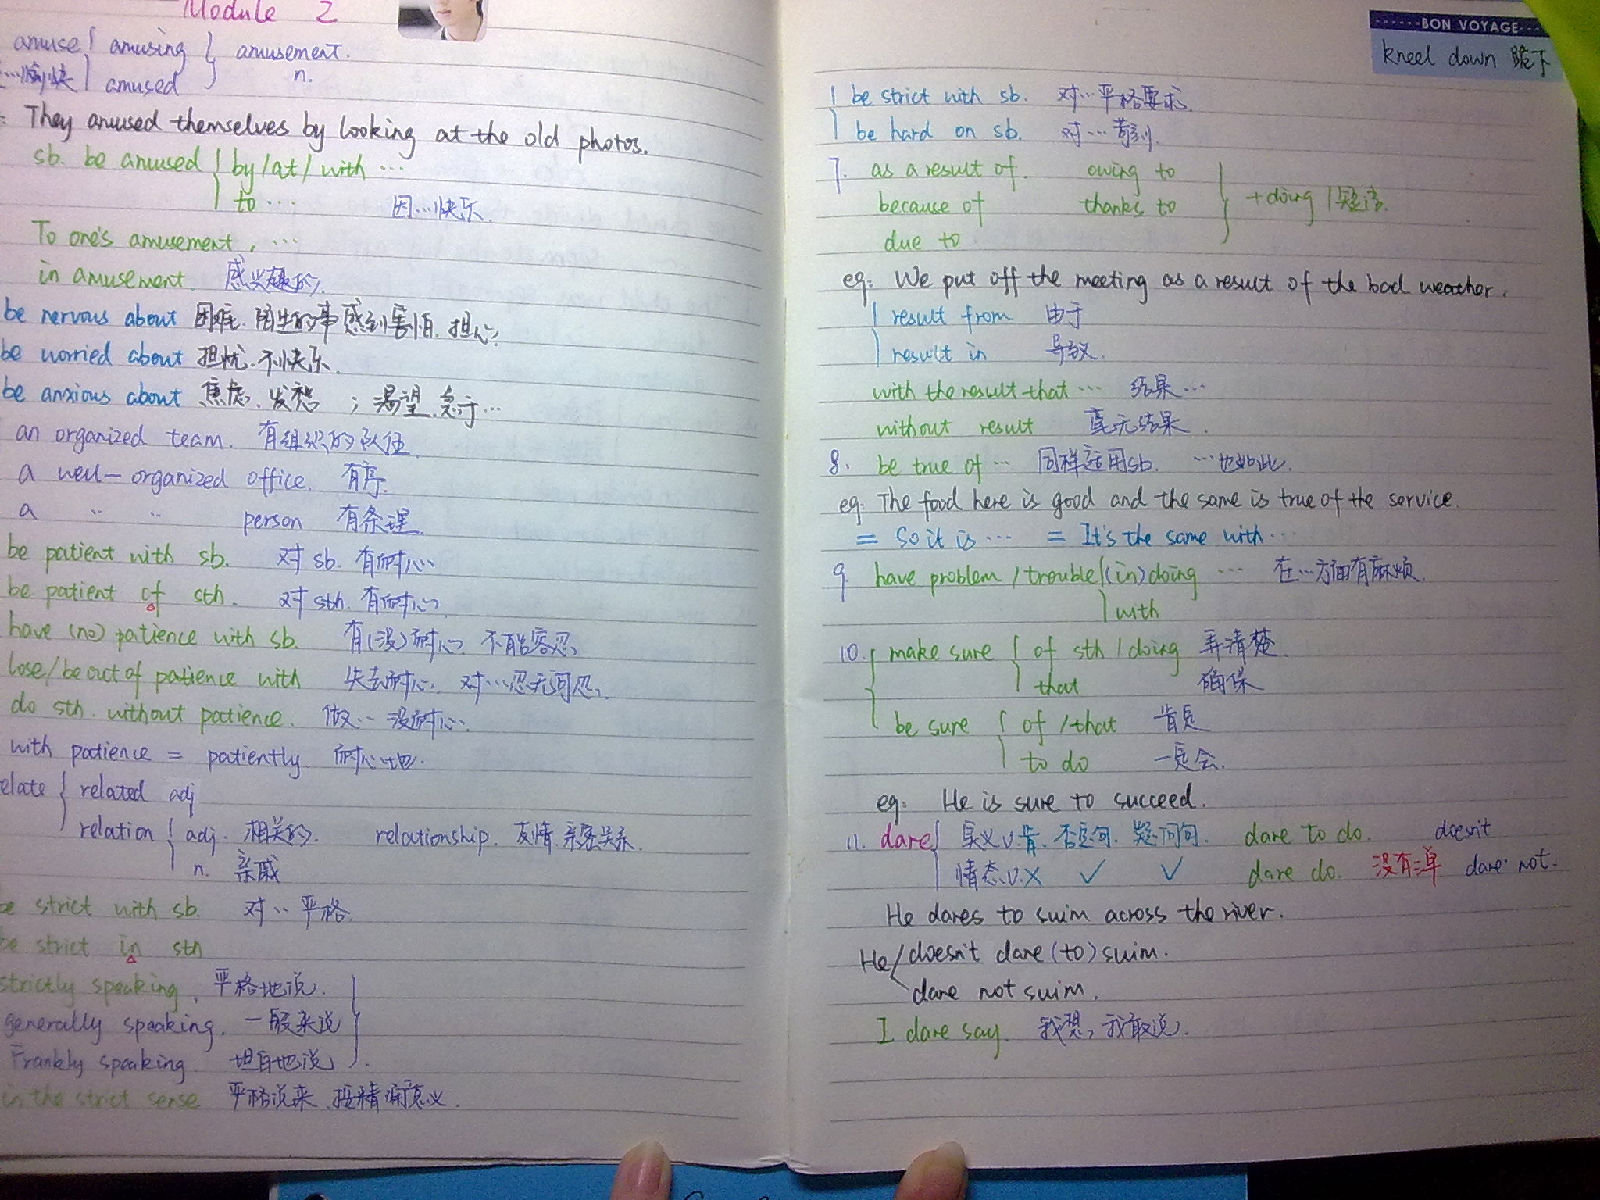 Module 2
amuse { amusing } amusement.
…愉快 amused n.
They amused themselves by looking at the old photos.
sb. be amused { by / at / with …
to … 因…快乐
To one's amusement, …
in amusement. 感兴趣的
be nervous about 困难. 陌生的事感到害怕. 担心.
be worried about 担忧. 不快乐
be anxious about 焦虑. 发愁 ; 渴望 急于…
an organized team. 有组织的队伍
a well-organized office. 有序.
a 〃 〃 person 有条理
be patient with sb. 对 sb. 有耐心
be patient of sth. 对 sth. 有耐心
have (no) patience with sb. 有(没)耐心 不能容忍
lose/be out of patience with 失去耐心. 对…忍无可忍.
do sth. without patience. 做… 没耐心.
with patience = patiently 耐心地.
elate { related adj
relation { adj. 相关的. relationship. 友情 亲密关系.
n. 亲戚
be strict with sb. 对…严格
be strict in sth
strictly speaking. 严格地说.
generally speaking. 一般来说
Frankly speaking 坦白地说
in the strict sense 严格说来.
BON VOYAGE
kneel down 跪下
be strict with sb. 对…严格要求.
be hard on sb. 对…苛刻.
7. as a result of. owing to
because of thanks to } + doing / 短语.
due to
eg: We put off the meeting as a result of the bad weather.
result from 由于
result in 导致.
with the result that … 结果…
without result 毫无结果.
8. be true of … 同样适用sb. …也如此.
eg. The food here is good and the same is true of the service.
= So it is … = It's the same with …
9 have problem / trouble (in) doing … 在…方面有麻烦.
with
10. { make sure { of sth / doing 弄清楚
that 确保
be sure { of / that 肯定
to do 一定会.
eg. He is sure to succeed.
11. dare { 实义v. 肯. 否定句. 疑问句. dare to do. doesn't
情态v. × ✓ ✓ dare do. 没有单 dare not.
He dares to swim across the river.
He doesn't dare (to) swim.
dare not swim.
I dare say. 我想, 我敢说.